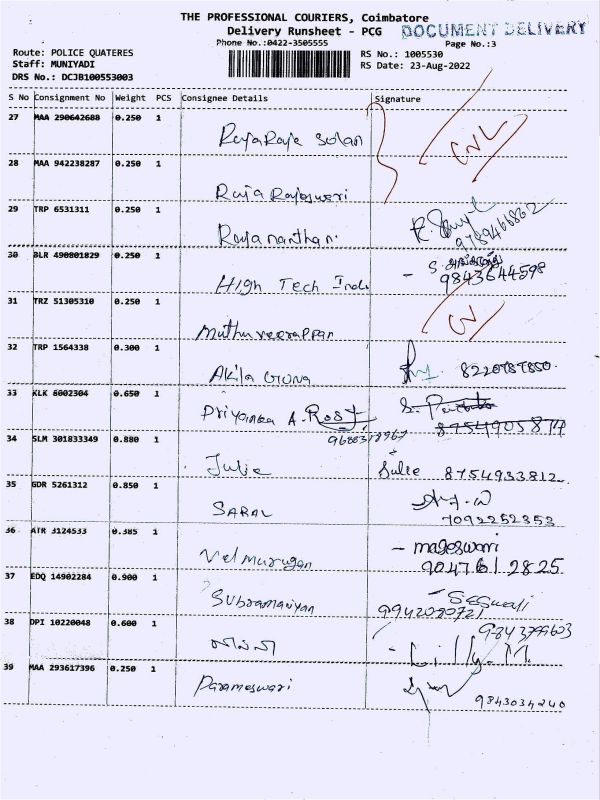 THE PROFESSIONAL COURIERS, Coimbatore
Delivery Runsheet - PCG
DOCUMENT DELIVERY
Phone No.:0422-3505555
Page No.:3
Route: POLICE QUATERES
RS No.: 1005530
Staff: MUNIYADI
RS Date: 23-Aug-2022
DRS No.: DCJB100553003
S No Consignment No Weight PCS Consignee Details Signature
27 MAA 290642688 0.250 1
28 MAA 942238287 0.250 1 Raja Rajeswari
29 TRP 6531311 0.250 1 Rajananthan.
30 BLR 490801829 0.250 1 High Tech Indi 9843644598
31 TRZ 51305310 0.250 1 Muthuveerappan
32 TRP 1564338 0.300 1 Akila Guna
33 KLK 6002304 0.650 1 Priyanka A. 8754905874
34 SLM 301833349 0.880 1 Julie Julie 8754933812
35 GDR 5261312 0.850 1 SARAL 7092252353
36 ATR 3124533 0.385 1 Velmurugan - mageswari 9047612825
37 EDQ 14902284 0.900 1 Subramaniyan
38 DPI 10220048 0.600 1 - Lilly.M.
39 MAA 293617396 0.250 1 Parameswari 9843034240